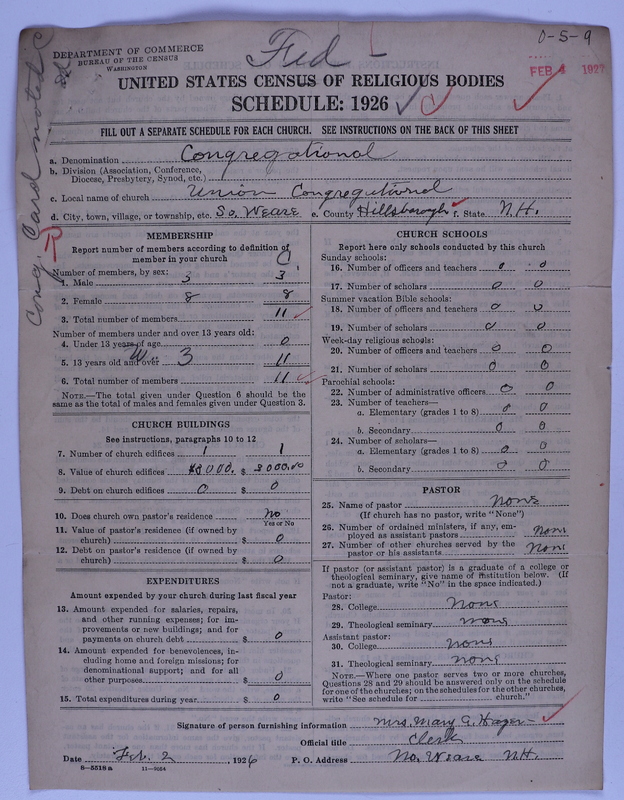 Fed
0-5-9
DEPARTMENT OF COMMERCE
BUREAU OF THE CENSUS
WASHINGTON
FEB 4 1927
UNITED STATES CENSUS OF RELIGIOUS BODIES
SCHEDULE: 1926
FILL OUT A SEPARATE SCHEDULE FOR EACH CHURCH. SEE INSTRUCTIONS ON THE BACK OF THIS SHEET
Cong. Card noted
a. Denomination Congregational
b. Division (Association, Conference,
Diocese, Presbytery, Synod, etc.)
c. Local name of church Union Congregational
d. City, town, village, or township, etc. So. Weare e. County Hillsborough f. State N.H.
MEMBERSHIP
Report number of members according to definition of
member in your church
Number of members, by sex:
1. Male 3 3
2. Female 8 8
3. Total number of members 11
Number of members under and over 13 years old:
4. Under 13 years of age 0
5. 13 years old and over 3 11
6. Total number of members 11
NOTE.—The total given under Question 6 should be
same as the total of males and females given under Question 3.
CHURCH BUILDINGS
See instructions, paragraphs 10 to 12
7. Number of church edifices 1 1
8. Value of church edifices $8000. $ 8000.00
9. Debt on church edifices 0 $ 0
10. Does church own pastor's residence No
Yes or No
11. Value of pastor's residence (if owned by
church) $ 0
12. Debt on pastor's residence (if owned by
church) $ 0
EXPENDITURES
Amount expended by your church during last fiscal year
13. Amount expended for salaries, repairs,
and other running expenses; for im-
provements or new buildings; and for
payments on church debt $ 0
14. Amount expended for benevolences, in-
cluding home and foreign missions; for
denominational support; and for all
other purposes $ 0
15. Total expenditures during year $ 0
CHURCH SCHOOLS
Report here only schools conducted by this church
Sunday schools:
16. Number of officers and teachers 0 0
17. Number of scholars 0 0
Summer vacation Bible schools:
18. Number of officers and teachers 0 0
19. Number of scholars 0 0
Week-day religious schools:
20. Number of officers and teachers 0 0
21. Number of scholars 0 0
Parochial schools:
22. Number of administrative officers 0 0
23. Number of teachers—
a. Elementary (grades 1 to 8) 0 0
b. Secondary 0 0
24. Number of scholars—
a. Elementary (grades 1 to 8) 0 0
b. Secondary 0 0
PASTOR
25. Name of pastor None
(If church has no pastor, write "None")
26. Number of ordained ministers, if any, em-
ployed as assistant pastors None
27. Number of other churches served by the
pastor or his assistants None
If pastor (or assistant pastor) is a graduate of a college or
theological seminary, give name of institution below. (If
not a graduate, write "No" in the space indicated.)
Pastor:
28. College None
29. Theological seminary None
Assistant pastor:
30. College None
31. Theological seminary None
NOTE.—Where one pastor serves two or more churches,
Questions 28 and 29 should be answered only on the schedule
for one of the churches; on the schedules for the other churches,
write "See schedule for church."
Signature of person furnishing information Mrs. Mary G. Hager
Official title Clerk
Date Feb. 2, 1926 P. O. Address No. Weare N.H.
8—5518a 11—9084